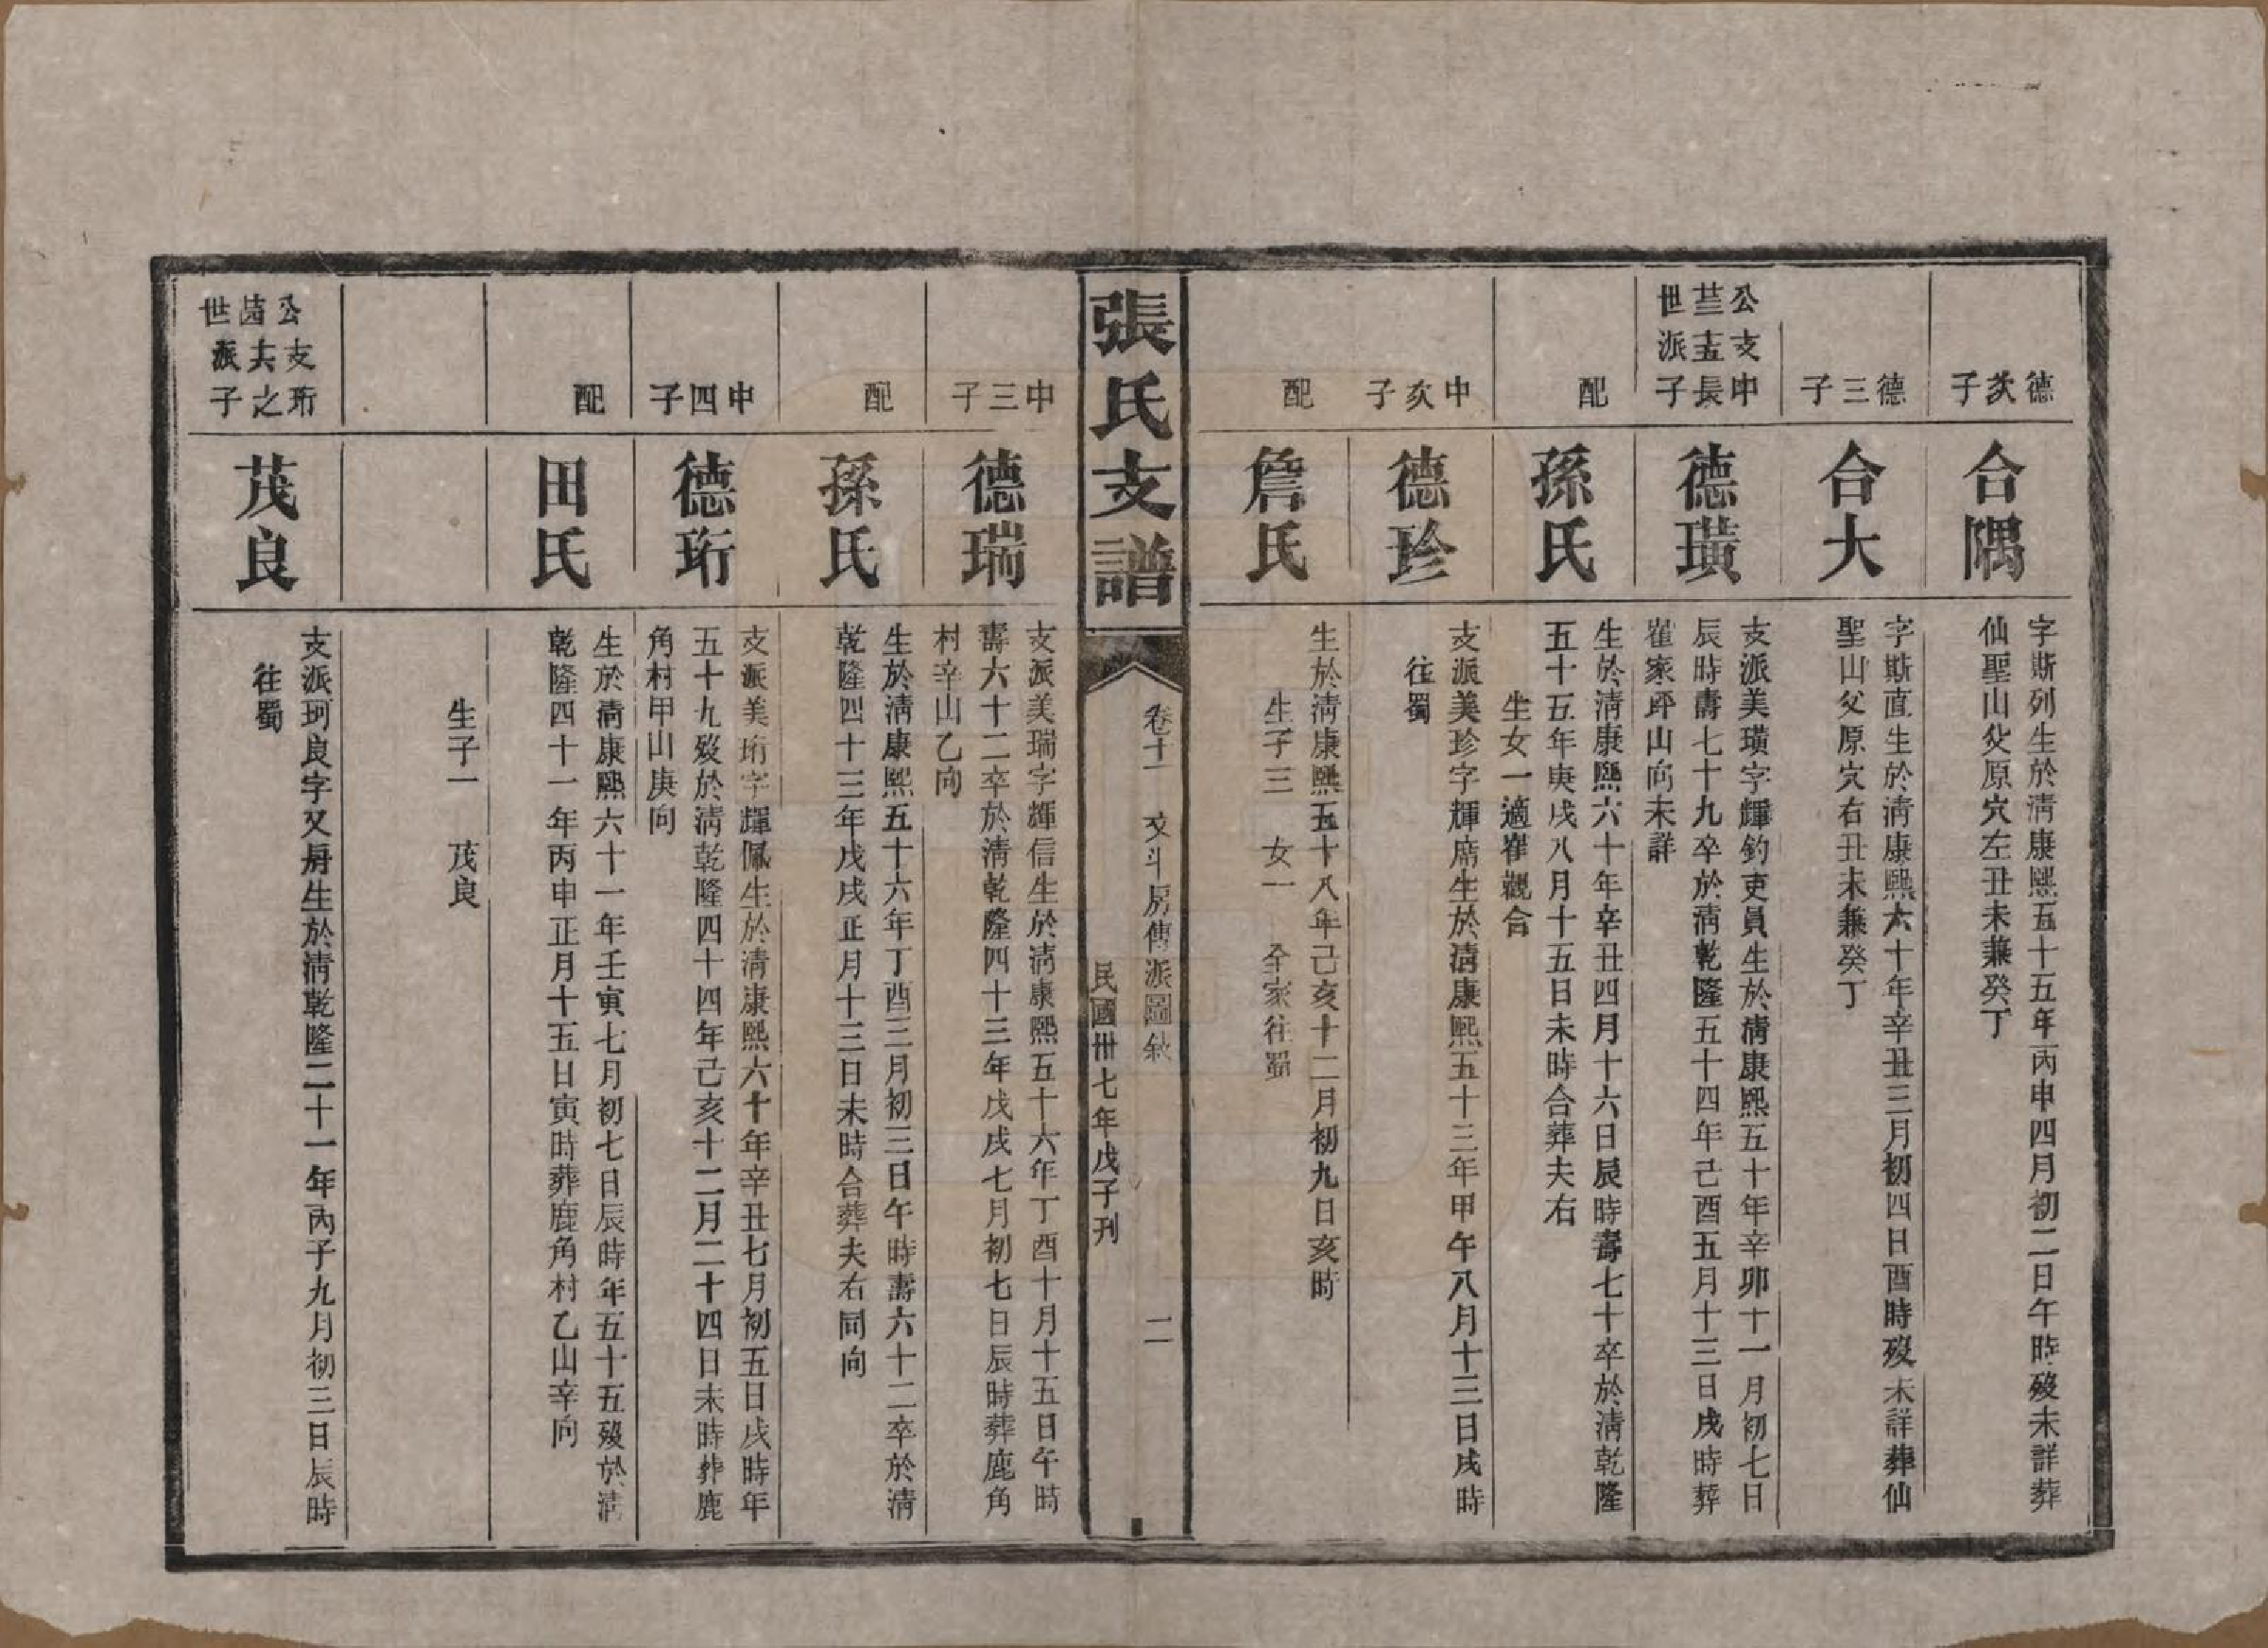 德次子
合隅
字斯列生於清康熙五十五年丙申四月初二日午時歿未詳葬
仙聖山父原穴左丑未兼癸丁
德三子
合大
字斯直生於清康熙六十年辛丑三月初四日酉時歿未詳葬仙
聖山父原穴右丑未兼癸丁
公支申
長
世派子
德璜
支派美璜字輝鈞吏員生於清康熙五十年辛卯十一月初七日
辰時壽七十九卒於清乾隆五十四年己酉五月十三日戌時葬
崔家坪山向未詳
配
孫氏
生於清康熙六十年辛丑四月十六日辰時壽七十卒於清乾隆
五十五年庚戌八月十五日未時合葬夫右
生女一適崔觀合
申次子
德珍
支派美珍字輝席生於清康熙五十三年甲午八月十三日戌時
往蜀
配
詹氏
生於清康熙五十八年己亥十二月初九日亥時
生子三 女一 全家往蜀
張氏支譜
卷十一 文斗房傳派圖敘 二
民國卅七年戊子刊
申三子
德瑞
支派美瑞字輝信生於清康熙五十六年丁酉十月十五日午時
壽六十二卒於清乾隆四十三年戊戌七月初七日辰時葬鹿角
村辛山乙向
配
孫氏
生於清康熙五十六年丁酉三月初三日午時壽六十二卒於清
乾隆四十三年戊戌正月十三日未時合葬夫右同向
申四子
德珩
支派美珩字輝佩生於清康熙六十年辛丑七月初五日戌時年
五十九歿於清乾隆四十四年己亥十二月二十四日未時葬鹿
角村甲山庚向
配
田氏
生於清康熙六十一年壬寅七月初七日辰時年五十五歿於清
乾隆四十一年丙申正月十五日寅時葬鹿角村乙山辛向
生子一 茂良
公支珩
之
世派子
茂良
支派珂良字又舟生於清乾隆二十一年丙子九月初三日辰時
往蜀